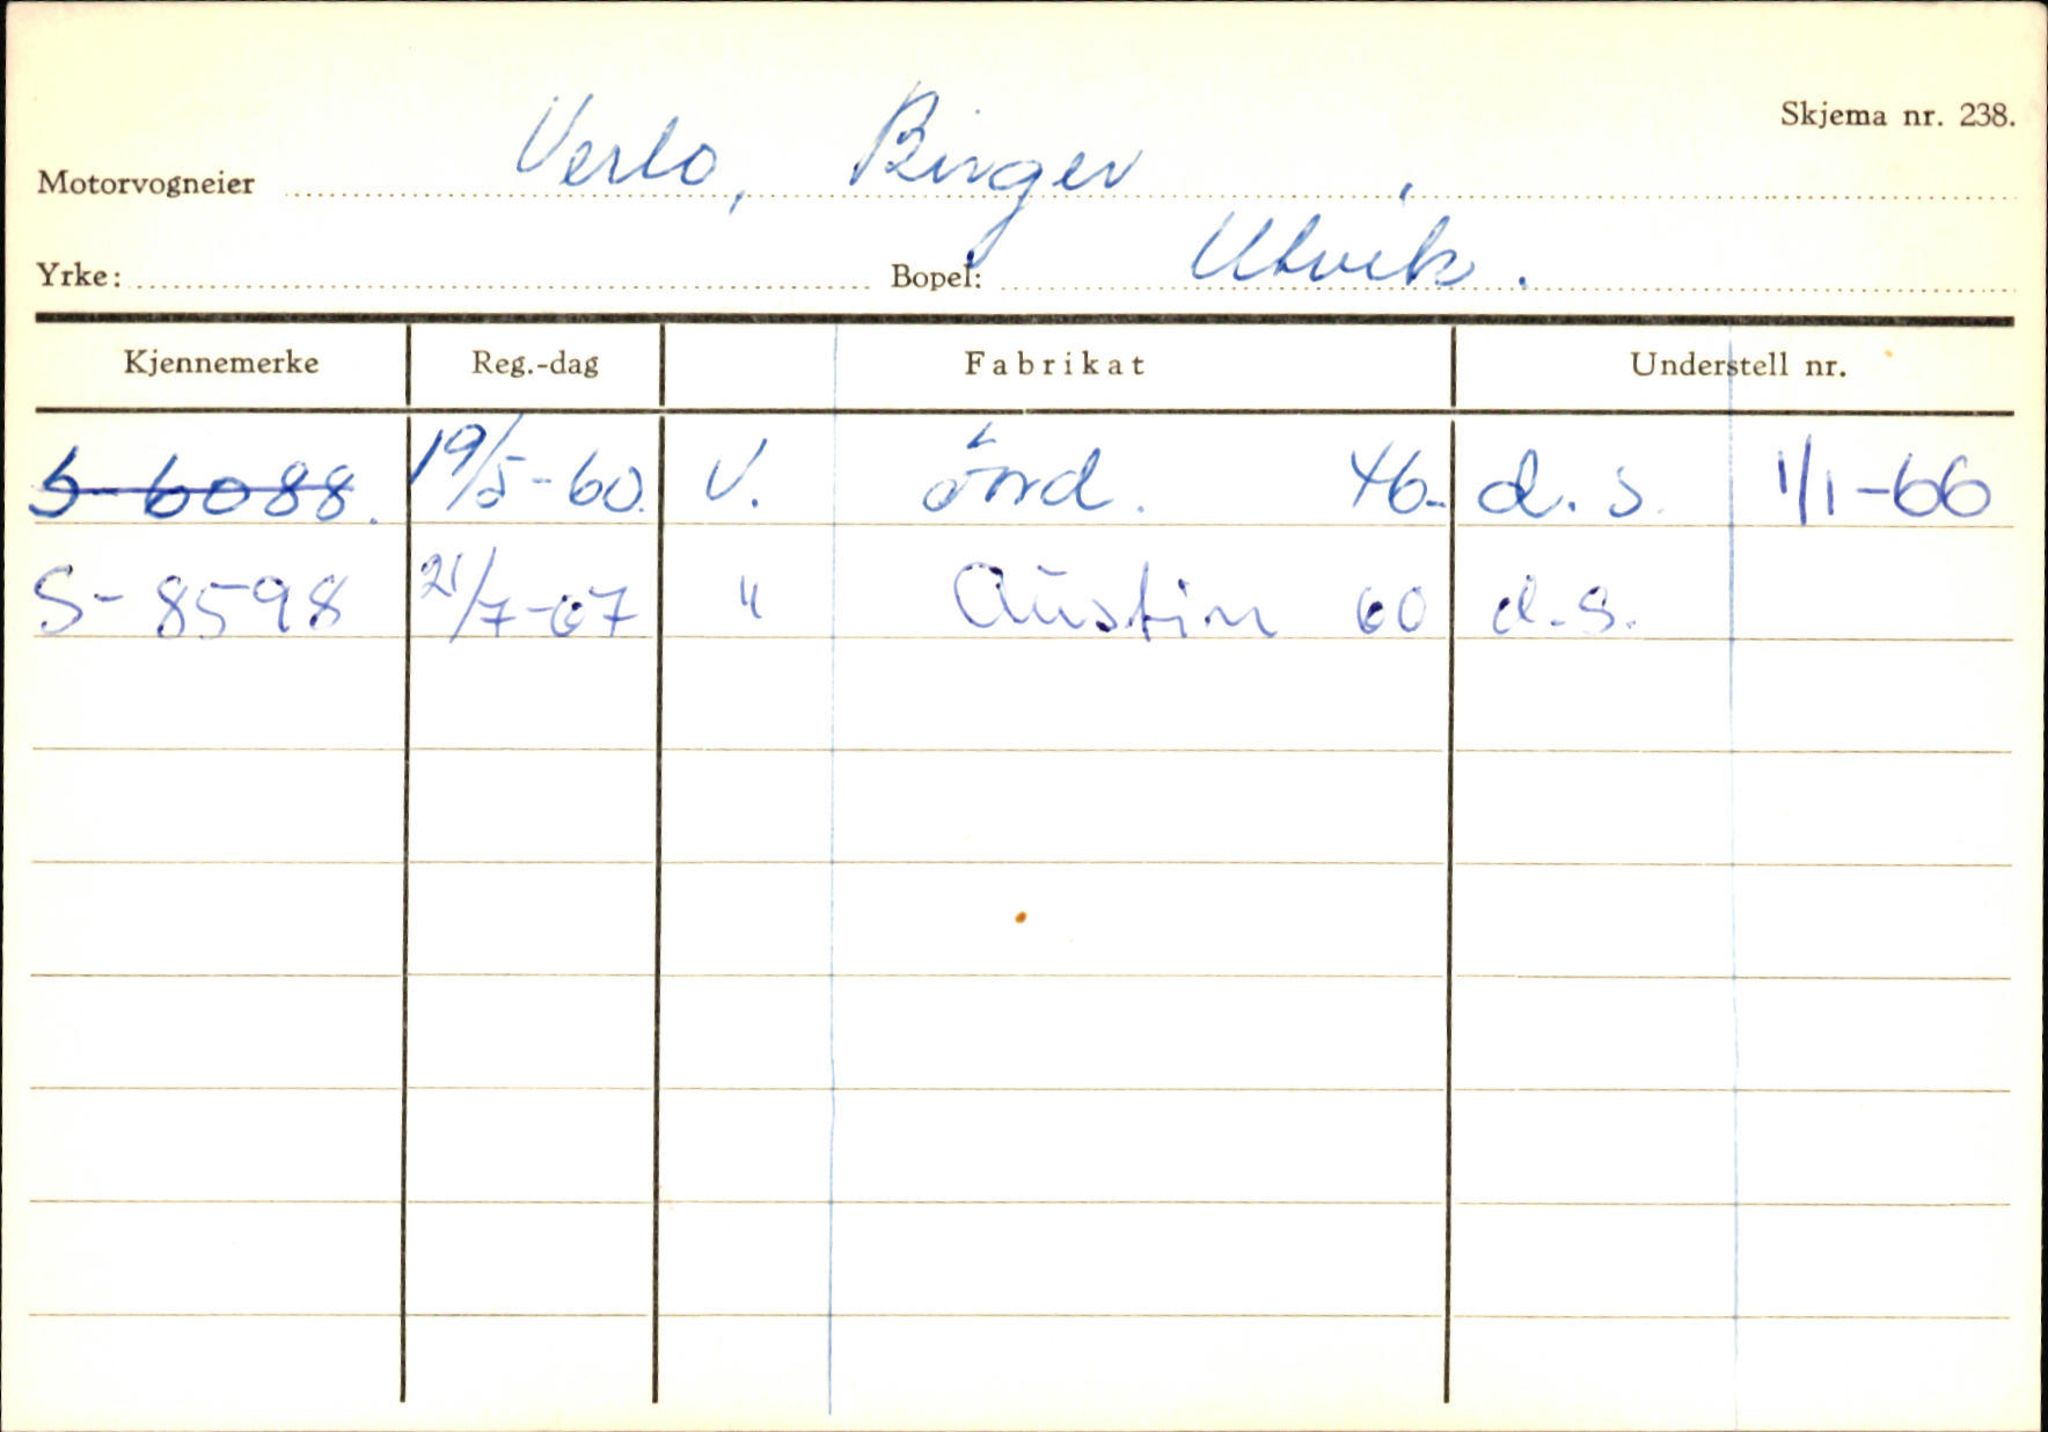 Skjema nr. 238.
Motorvogneier Verlo, Birger
Yrke: Bopel: Utvik.
Kjennemerke Reg.-dag Fabrikat Understell nr.
S-6088. 19/5-60. V. 46. d.s. 1/1-66
S-8598 21/7-67 " Austin 60 d.s.